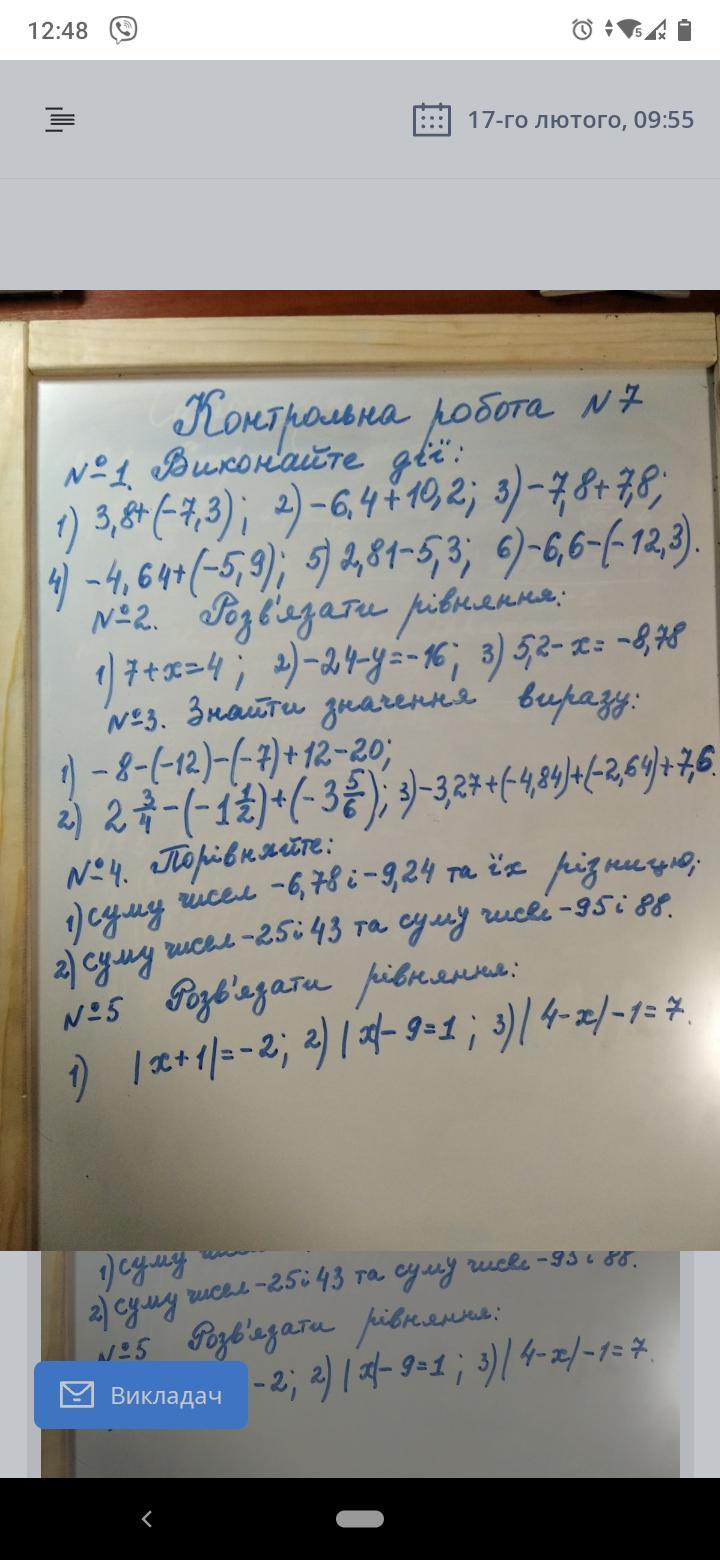 12:48
5
17-го лютого, 09:55
Контрольна робота N 7
№1. Виконайте дії:
1) 3,8+(-7,3); 2) -6,4+10,2; 3) -7,8+7,8;
4) -4,64+(-5,9); 5) 2,81-5,3; 6) -6,6-(-12,3).
№2. Розв'язати рівняння:
1) 7+x=4; 2) -24-y=-16; 3) 5,2-x=-8,78
№3. Знайти значення виразу:
1) -8-(-12)-(-7)+12-20;
2) 2 3/4-(-1 1/2)+(-3 5/6); 3) -3,27+(-4,84)+(-2,64)+7,6.
№4. Порівняйте:
1) суму чисел -6,78 і -9,24 та їх різницю;
2) суму чисел -25 і 43 та суму чисел -95 і 88.
№5 Розв'язати рівняння:
1) |x+1|=-2; 2) |x|-9=1; 3) |4-x|-1=7.
1) суму
2) суму чисел -25 і 43 та суму чисел -95 і 88.
№5 Розв'язати рівняння:
-2; 2) |x|-9=1; 3) |4-x|-1=7.
Викладач